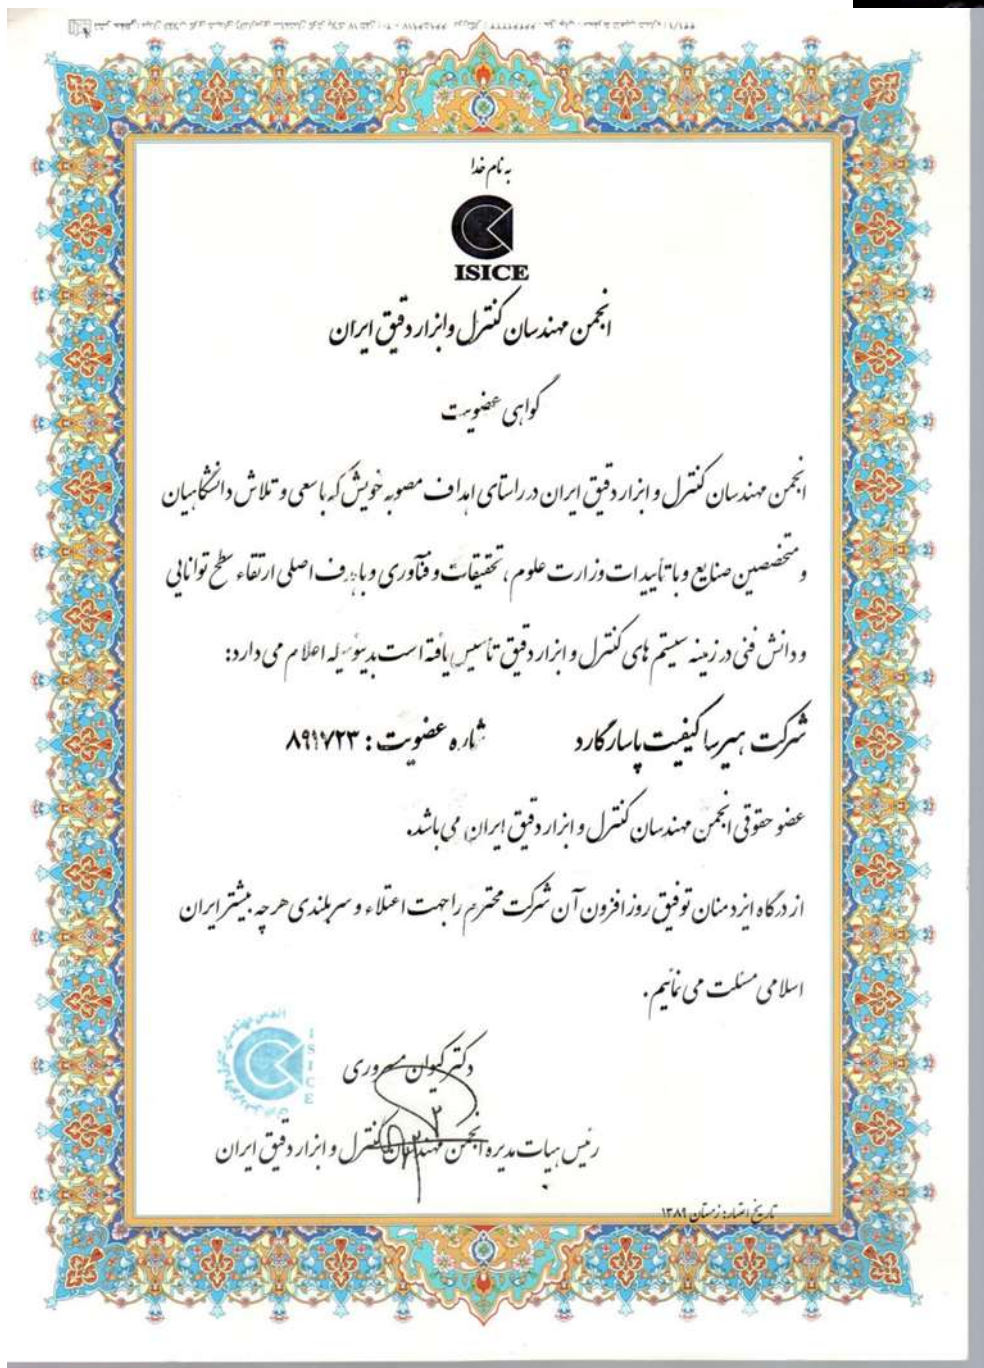 به نام خدا
ISICE
انجمن مهندسان کنترل و ابزار دقیق ایران
گواهی عضویت
انجمن مهندسان کنترل و ابزار دقیق ایران در راستای اهداف مصوبه خویش که با سعی و تلاش دانشگاهیان
و متخصصین صنایع و با تأییدات وزارت علوم ، تحقیقات و فنآوری و با هدف اصلی ارتقاء سطح توانایی
و دانش فنی در زمینه سیستم های کنترل و ابزار دقیق تأسیس یافته است بدینوسیله اعلام می دارد:
شرکت هیرسا کیفیت پاسارگارد شماره عضویت : ۸۹۱۷۲۳
عضو حقوقی انجمن مهندسان کنترل و ابزار دقیق ایران می باشد.
از درگاه ایزد منان توفیق روز افزون آن شرکت محترم را جهت اعتلاء و سربلندی هر چه بیشتر ایران
اسلامی مسئلت می نمائیم .
دکتر کیوان مسروری
ISICE
رئیس هیات مدیره انجمن مهندسان کنترل و ابزار دقیق ایران
تاریخ اعتبار: زمستان ۱۳۸۹